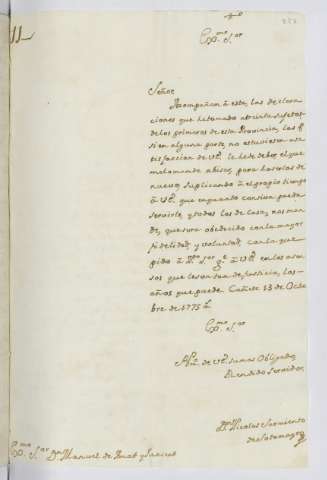 Exmo. Sor.
Señor
Acompañan á esta, las declara
ciones que he tomado a treinta sujetos
de los primeros de esta Provincia, las qs
si en alguna parte, no estuviesen a sa
tisfaccion de VE. le he de deber el que
me lo mande
nuevo, suplicando á el propio tiempo
á VE. que en quanto considere pueda
servirle, y todos los de casa, nos man
de, que sera obedecido con la mayor
fidelidad, y voluntad, con la que
pido á Ntro. Sor. ge. á VE. en los asen
sos que le son tan de Justicia, los
años que puede. Cañete 13 de Octu
bre de 1775
Exmo. Sor.
de VE. su mas Obligado,
Rendido Servidor
Dn. Nicolas Sarmiento
de Sotomayor
Exmo. Sor. Dn. Manuel de Amat y Junient